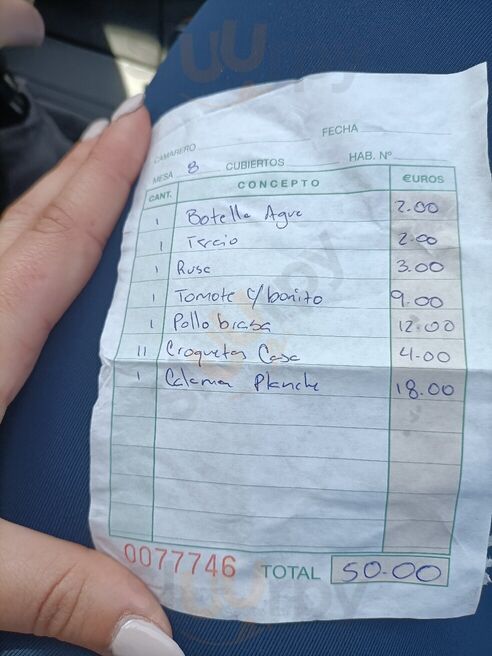 CAMARERO FECHA
MESA 8 CUBIERTOS HAB. Nº
CANT. CONCEPTO €UROS
1 Botella Agua 2.00
1 Tercio 2.00
1 Rusa 3.00
1 Tomate c/bonito 9.00
1 Pollo brasa 12.00
11 Croquetas Casa 4.00
1 Calamar Planche 18.00
0077746 TOTAL 50.00